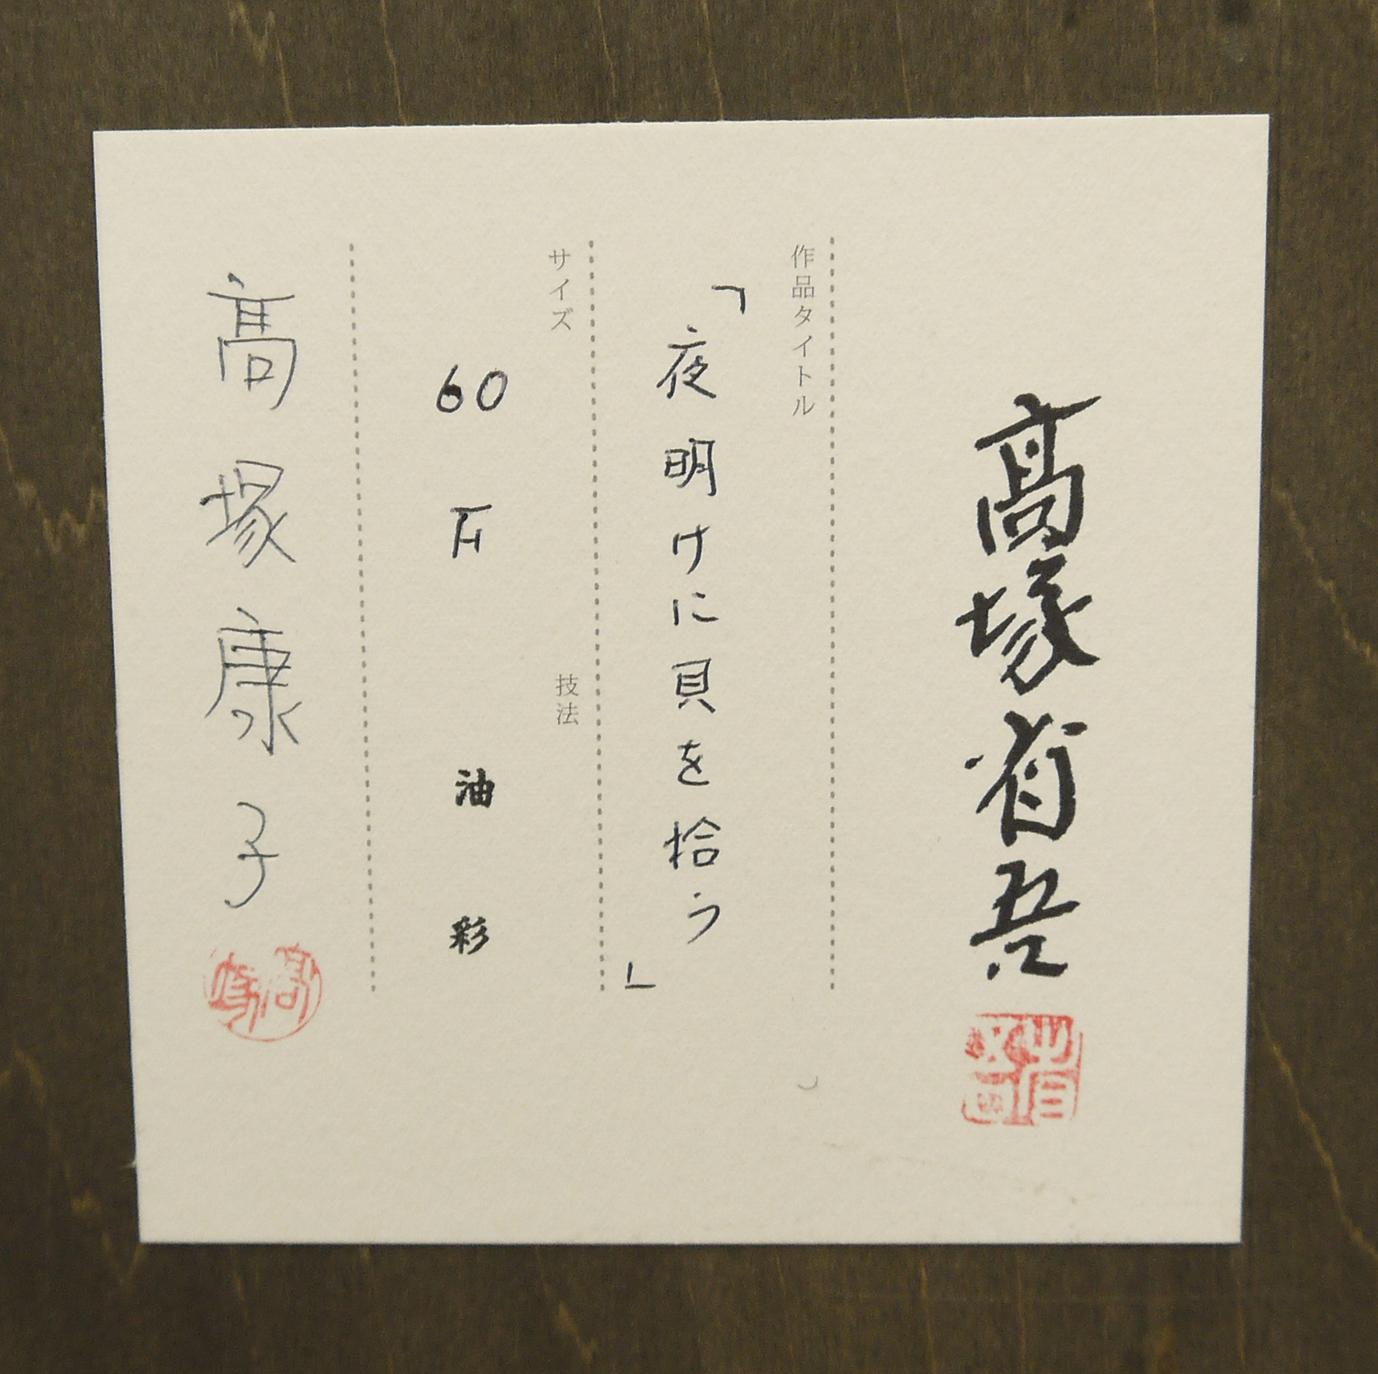 髙塚省吾
省吾
作品タイトル
「夜明けに貝を拾う」
サイズ
60 万
技法
油彩
髙塚康子
髙塚